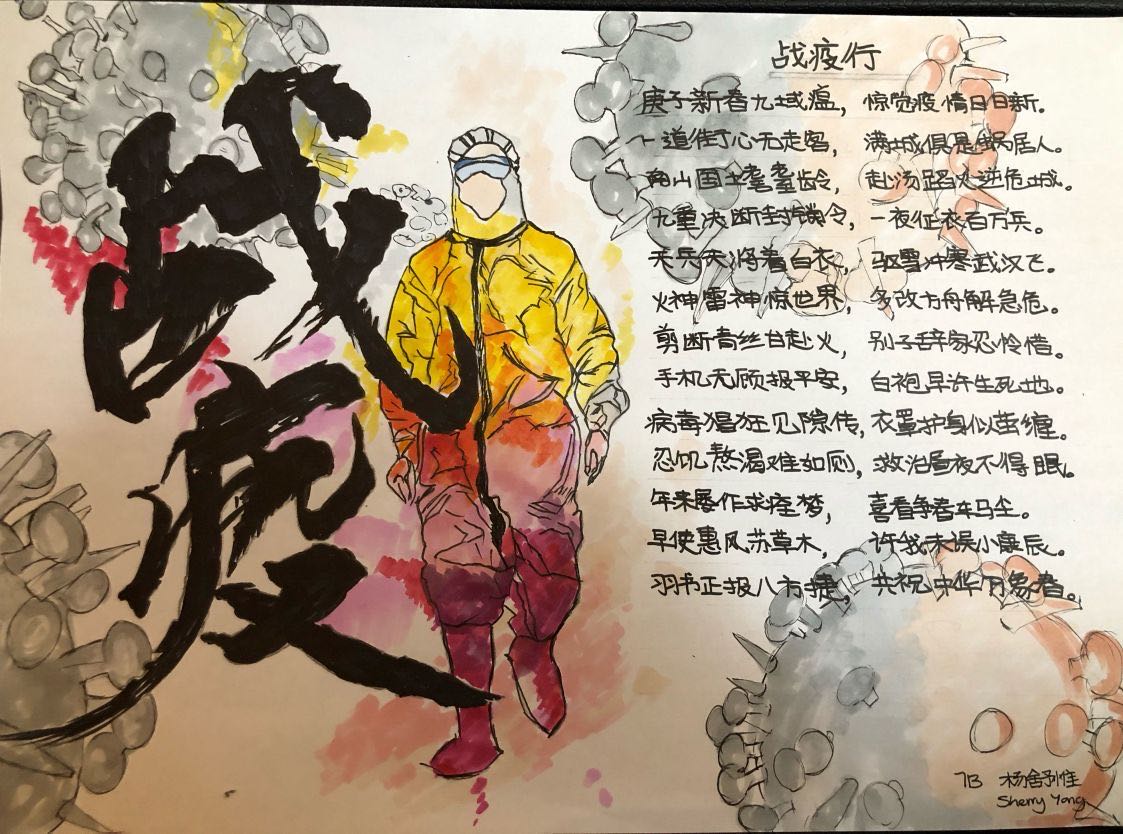 战疫
战疫行
庚子新春九域瘟，惊觉疫情日日新。
一道街心无走客，满城俱是蜗居人。
南山国士耄耋龄，赴汤蹈火逆危城。
九重决断封城令，一夜征衣百万兵。
天兵天将着白衣，驱雪冲寒武汉飞。
火神雷神惊世界，多改方舟解急危。
剪断青丝甘赴火，别子辞家忍怜惜。
手机无顾报平安，白袍早许生死地。
病毒猖狂见隙传，衣罩护身似茧缠。
忍饥熬渴难如厕，救治昼夜不得眠。
年来屡作求痊梦，喜看争春车马尘。
早使惠风苏草木，许我未误小康辰。
羽书正报八方捷，共祝中华万象春。
7B 杨舒惟
Sherry Yang